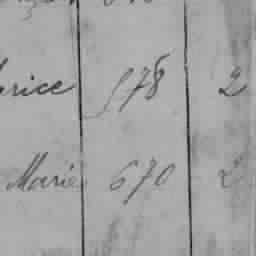 rice 578 2
Marie 670 2